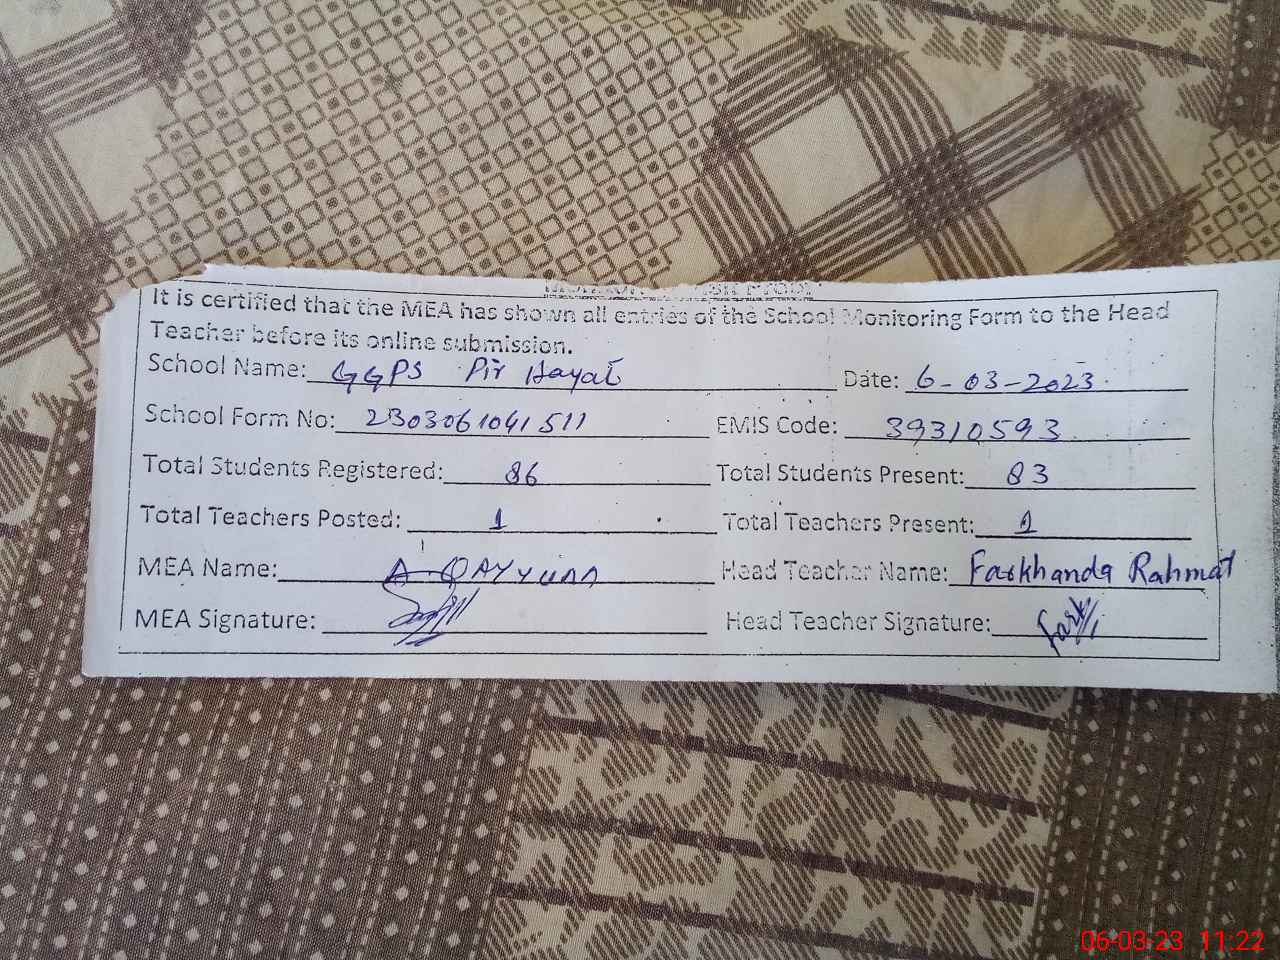 It is certified that the MEA has shown all entries of the School Monitoring Form to the Head
Teacher before its online submission.
School Name: GGPS Pir Hayat Date: 6-03-2023
School Form No: 2303061041511 EMIS Code: 39310593
Total Students Registered: 86 Total Students Present: 83
Total Teachers Posted: 1 Total Teachers Present: 1
MEA Name: A. QAYYUM Head Teacher Name: Farkhanda Rahmat
MEA Signature: Head Teacher Signature:
06-03-23 11:22